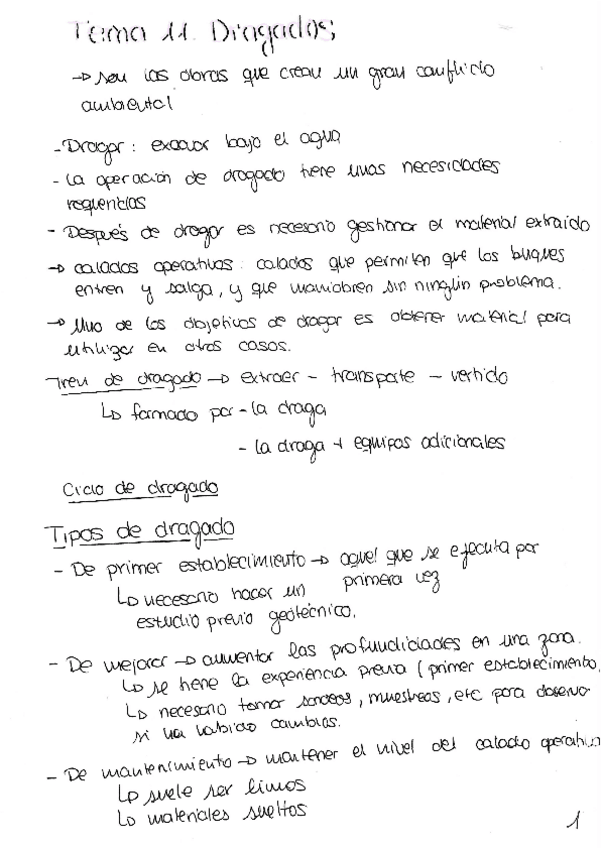 Tema 11. Dragados;
→ son las obras que crean un gran conflicto
ambiental
- Dragar: excavar bajo el agua
- La operación de dragado tiene unas necesidades
requeridas
- Después de dragar es necesario gestionar el material extraído
→ calados operativos: calados que permiten que los buques
entren y salga, y que maniobren sin ningún problema.
→ Uno de los objetivos de dragar es obtener material para
utilizar en otros casos.
Tren de dragado → extraer - transporte - vertido
↳ formado por - la draga
- la draga + equipos adicionales
Ciclo de dragado
Tipos de dragado
- De primer establecimiento → aquel que se ejecuta por
primera vez
↳ necesario hacer un
estudio previo geotécnico.
- De mejorar → aumentar las profundidades en una zona.
↳ se tiene la experiencia previa (primer establecimiento
↳ necesario tomar sondeos, muestreas, etc para observar
si ha habido cambios.
- De mantenimiento → mantener el nivel del calado operativo
↳ suele ser limos
↳ materiales sueltos
1